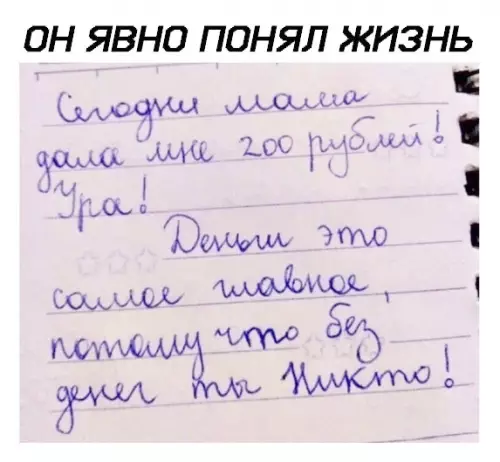 ОН ЯВНО ПОНЯЛ ЖИЗНЬ
Сегодня мама
дала мне 200 рублей!
Ура!
Деньги это
самое главное,
потому что без
денег ты Никто!